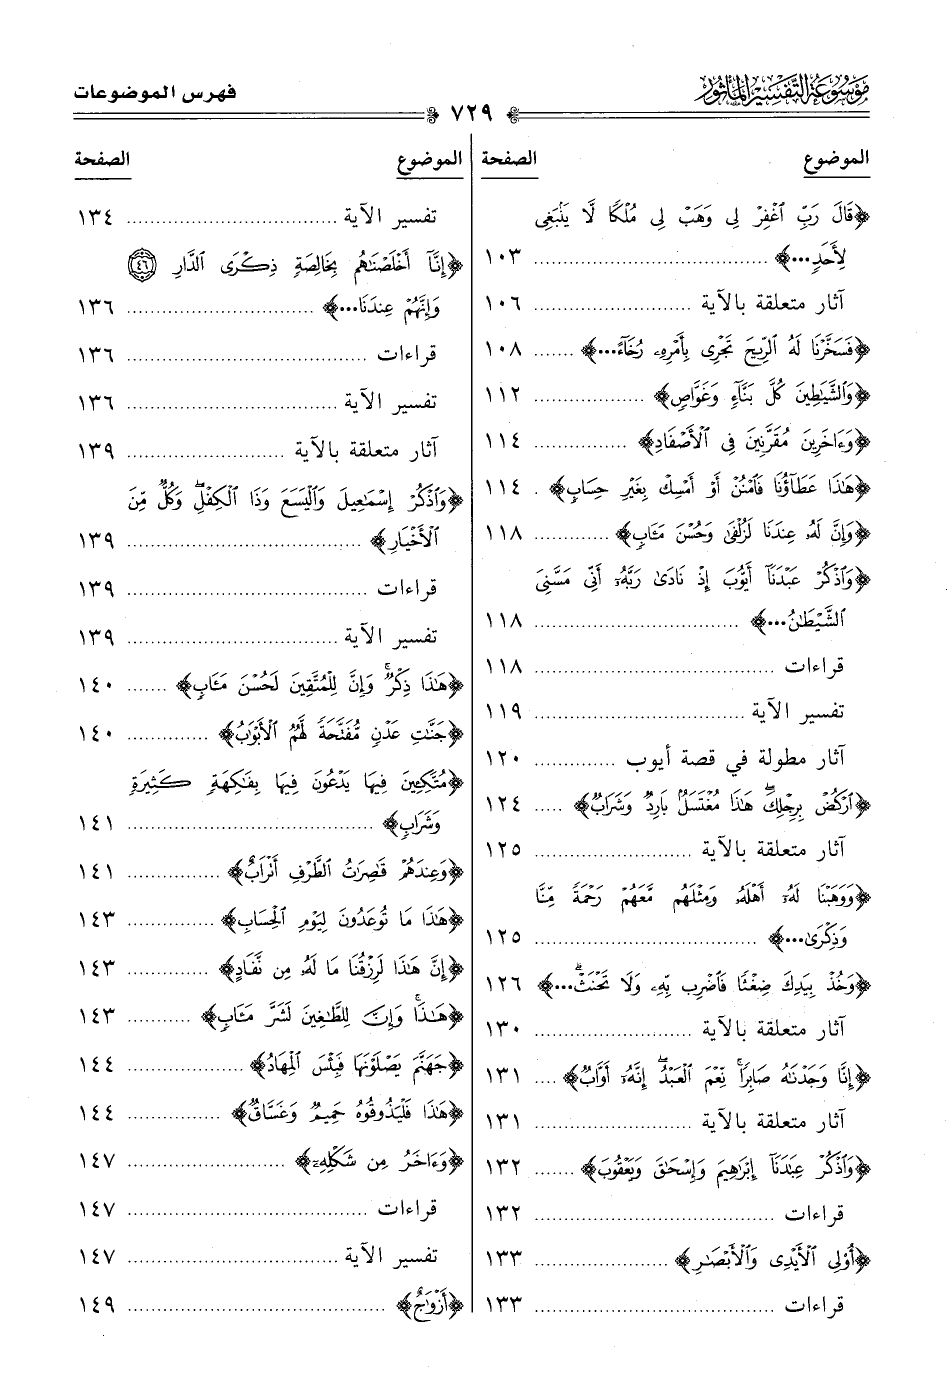 موسوعة التفسير المأثور
فهرس الموضوعات
٧٢٩
الموضوع الصفحة
﴿قَالَ رَبِّ ٱغْفِرْ لِى وَهَبْ لِى مُلْكًا لَّا يَنۢبَغِى
لِأَحَدٍ...﴾ ........ ١٠٣
آثار متعلقة بالآية ........ ١٠٦
﴿فَسَخَّرْنَا لَهُ ٱلرِّيحَ تَجْرِى بِأَمْرِهِۦ رُخَآءً...﴾ ....... ١٠٨
﴿وَٱلشَّيَٰطِينَ كُلَّ بَنَّآءٍ وَغَوَّاصٍ﴾ ........ ١١٢
﴿وَءَاخَرِينَ مُقَرَّنِينَ فِى ٱلْأَصْفَادِ﴾ ........ ١١٤
﴿هَٰذَا عَطَآؤُنَا فَٱمْنُنْ أَوْ أَمْسِكْ بِغَيْرِ حِسَابٍ﴾ . ١١٤
﴿وَإِنَّ لَهُۥ عِندَنَا لَزُلْفَىٰ وَحُسْنَ مَـَٔابٍ﴾ ........ ١١٨
﴿وَٱذْكُرْ عَبْدَنَآ أَيُّوبَ إِذْ نَادَىٰ رَبَّهُۥٓ أَنِّى مَسَّنِىَ
ٱلشَّيْطَٰنُ...﴾ ........ ١١٨
قراءات ........ ١١٨
تفسير الآية ........ ١١٩
آثار مطولة في قصة أيوب ........ ١٢٠
﴿ٱرْكُضْ بِرِجْلِكَ ۖ هَٰذَا مُغْتَسَلٌۢ بَارِدٌ وَشَرَابٌ﴾ ..... ١٢٤
آثار متعلقة بالآية ........ ١٢٥
﴿وَوَهَبْنَا لَهُۥٓ أَهْلَهُۥ وَمِثْلَهُم مَّعَهُمْ رَحْمَةً مِّنَّا
وَذِكْرَىٰ...﴾ ........ ١٢٥
﴿وَخُذْ بِيَدِكَ ضِغْثًا فَٱضْرِب بِّهِۦ وَلَا تَحْنَثْ ۗ...﴾ ١٢٦
آثار متعلقة بالآية ........ ١٣٠
﴿إِنَّا وَجَدْنَٰهُ صَابِرًا ۚ نِّعْمَ ٱلْعَبْدُ ۖ إِنَّهُۥٓ أَوَّابٌ﴾ .... ١٣١
آثار متعلقة بالآية ........ ١٣١
﴿وَٱذْكُرْ عِبَٰدَنَآ إِبْرَٰهِيمَ وَإِسْحَٰقَ وَيَعْقُوبَ﴾ ....... ١٣٢
قراءات ........ ١٣٢
﴿أُو۟لِى ٱلْأَيْدِى وَٱلْأَبْصَٰرِ﴾ ........ ١٣٣
قراءات ........ ١٣٣
الموضوع الصفحة
تفسير الآية ........ ١٣٤
﴿إِنَّآ أَخْلَصْنَٰهُم بِخَالِصَةٍ ذِكْرَى ٱلدَّارِ ٤٦
وَإِنَّهُمْ عِندَنَا...﴾ ........ ١٣٦
قراءات ........ ١٣٦
تفسير الآية ........ ١٣٦
آثار متعلقة بالآية ........ ١٣٩
﴿وَٱذْكُرْ إِسْمَٰعِيلَ وَٱلْيَسَعَ وَذَا ٱلْكِفْلِ ۖ وَكُلٌّ مِّنَ
ٱلْأَخْيَارِ﴾ ........ ١٣٩
قراءات ........ ١٣٩
تفسير الآية ........ ١٣٩
﴿هَٰذَا ذِكْرٌ ۚ وَإِنَّ لِلْمُتَّقِينَ لَحُسْنَ مَـَٔابٍ﴾ ....... ١٤٠
﴿جَنَّٰتِ عَدْنٍ مُّفَتَّحَةً لَّهُمُ ٱلْأَبْوَٰبُ﴾ ........ ١٤٠
﴿مُتَّكِـِٔينَ فِيهَا يَدْعُونَ فِيهَا بِفَٰكِهَةٍ كَثِيرَةٍ
وَشَرَابٍ﴾ ........ ١٤١
﴿وَعِندَهُمْ قَٰصِرَٰتُ ٱلطَّرْفِ أَتْرَابٌ﴾ ........ ١٤١
﴿هَٰذَا مَا تُوعَدُونَ لِيَوْمِ ٱلْحِسَابِ﴾ ........ ١٤٣
﴿إِنَّ هَٰذَا لَرِزْقُنَا مَا لَهُۥ مِن نَّفَادٍ﴾ ........ ١٤٣
﴿هَٰذَا ۚ وَإِنَّ لِلطَّٰغِينَ لَشَرَّ مَـَٔابٍ﴾ ........ ١٤٣
﴿جَهَنَّمَ يَصْلَوْنَهَا فَبِئْسَ ٱلْمِهَادُ﴾ ........ ١٤٤
﴿هَٰذَا فَلْيَذُوقُوهُ حَمِيمٌ وَغَسَّاقٌ﴾ ........ ١٤٤
﴿وَءَاخَرُ مِن شَكْلِهِۦٓ﴾ ........ ١٤٧
قراءات ........ ١٤٧
تفسير الآية ........ ١٤٧
﴿أَزْوَٰجٌ﴾ ........ ١٤٩